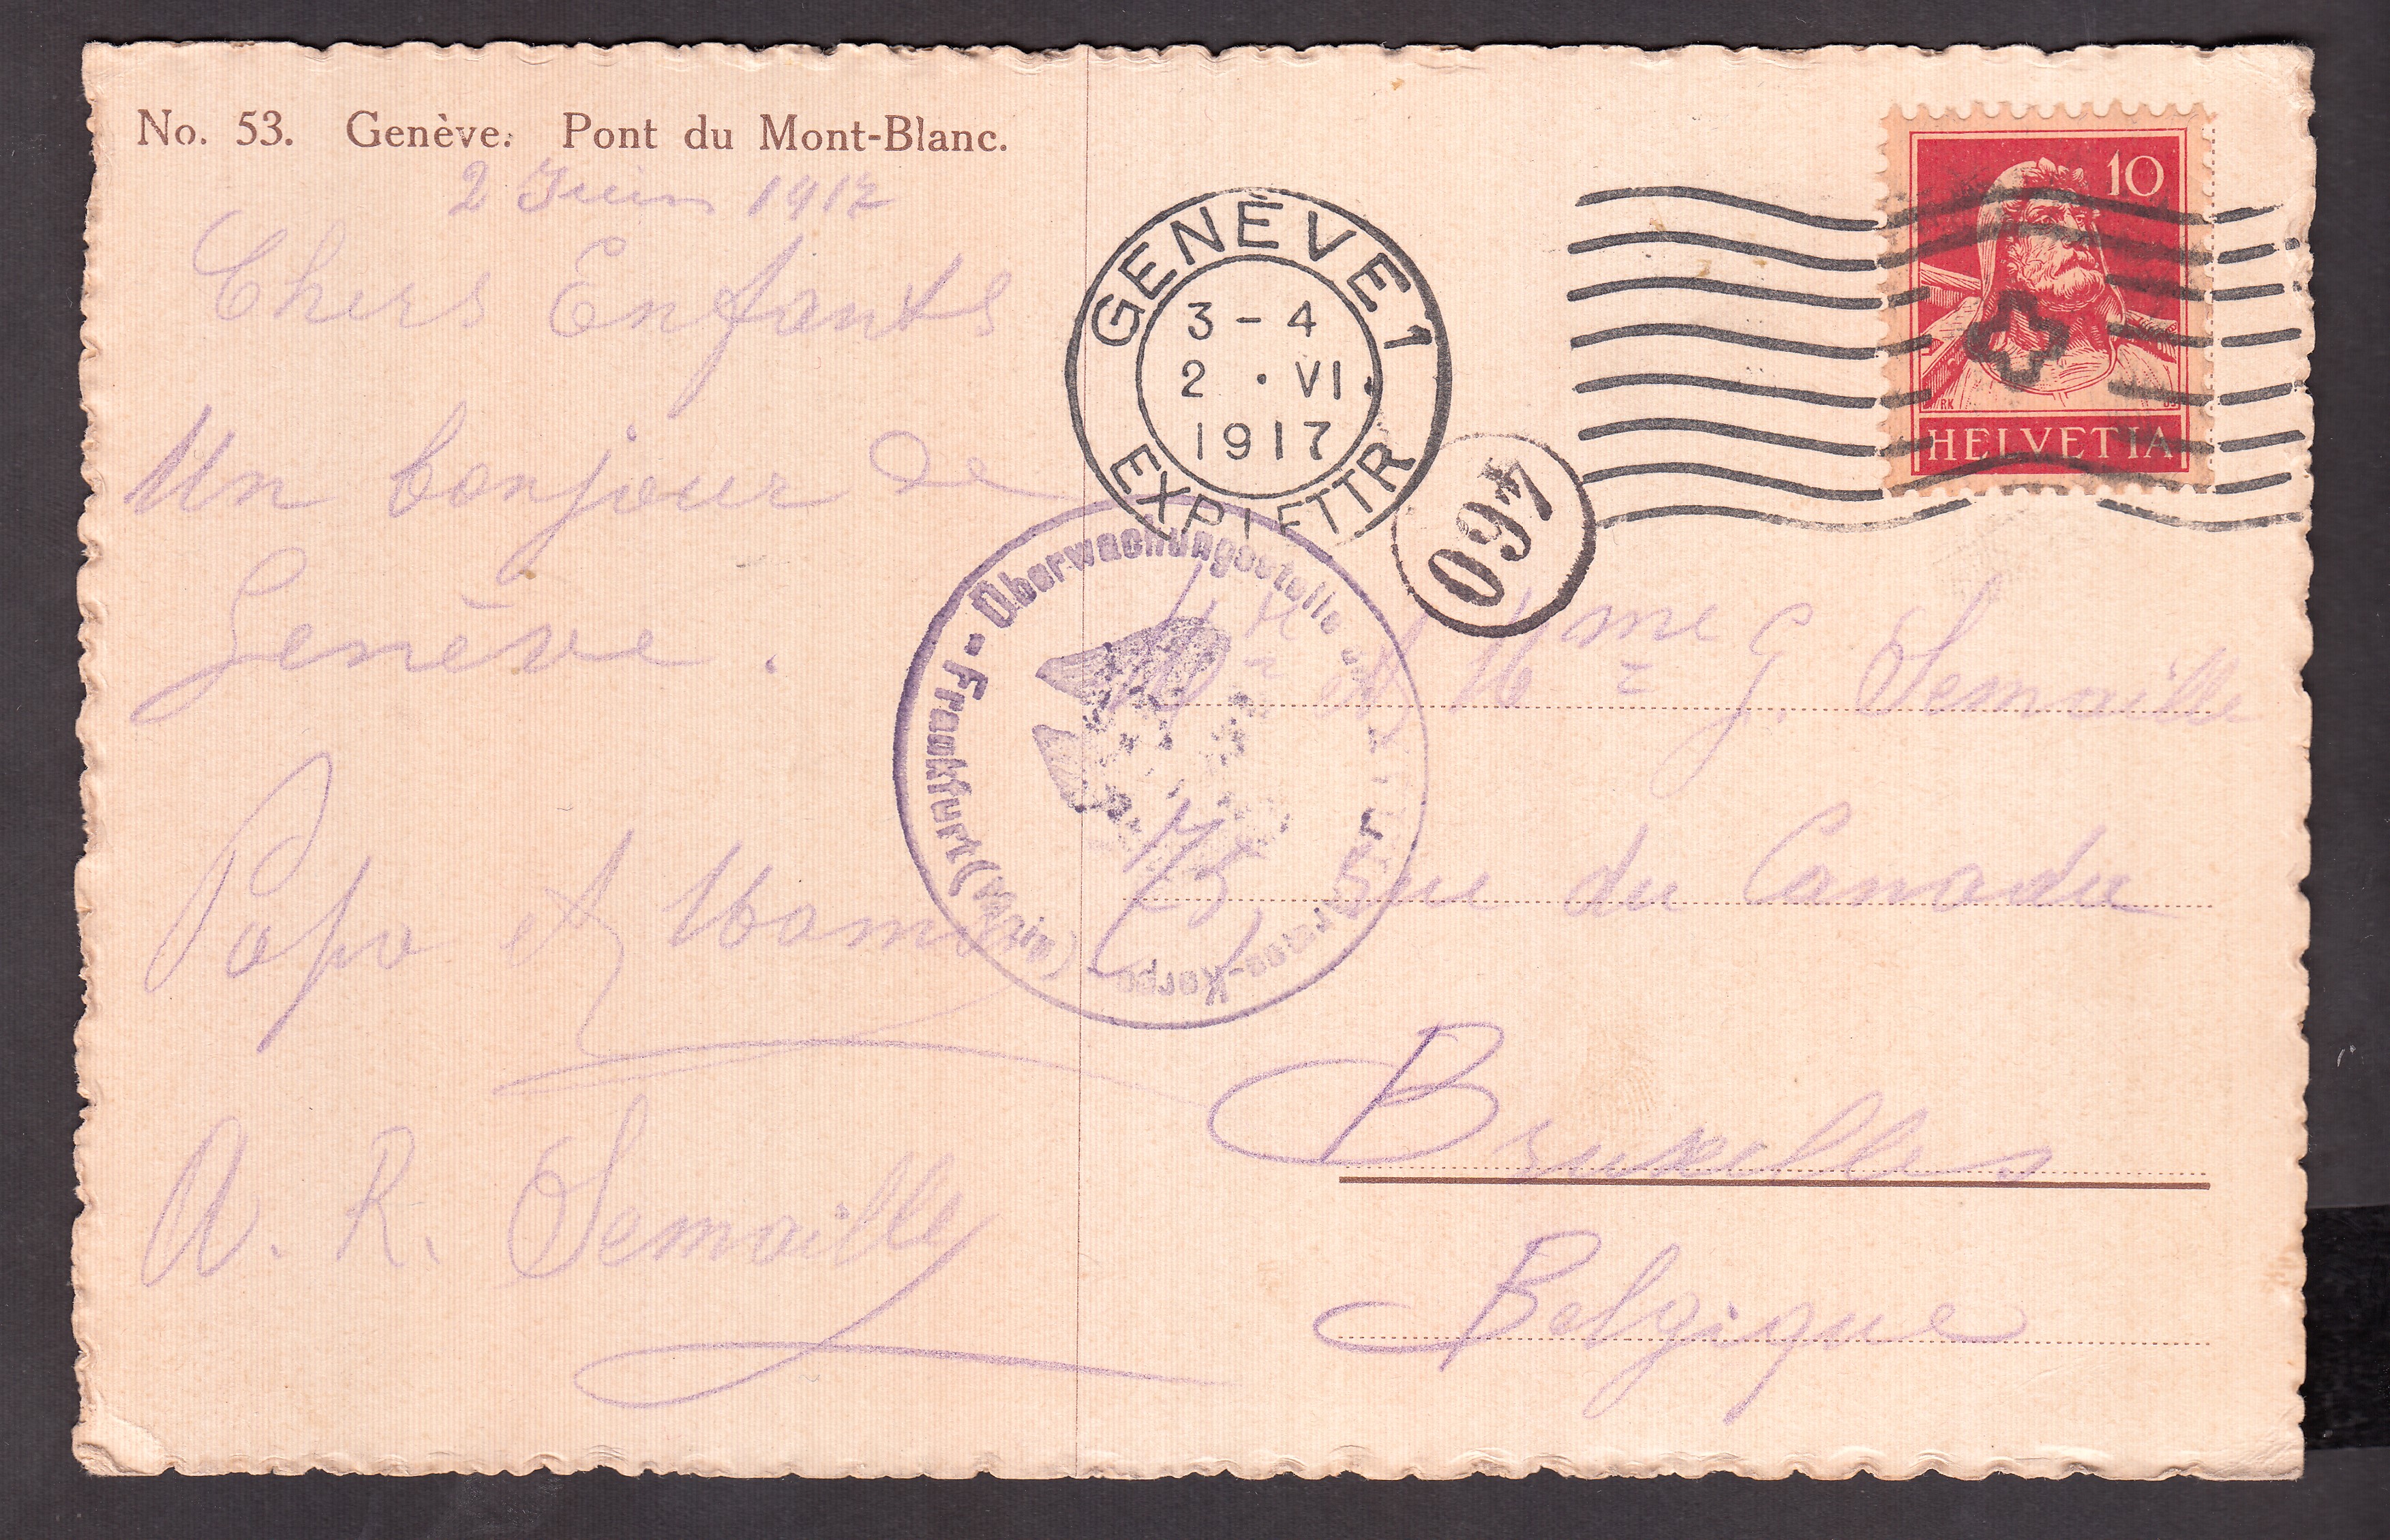 No. 53. Genève. Pont du Mont-Blanc.
2 Juin 1917
Chers Enfants
Un bonjour de
Genève.
Papa et Mama
A. R. Semaille
GENÈVE 1
3-4
2 . VI.
1917
EXP. LETTR
460
10
HELVETIA
Überwachungsstelle
Frankfurt (Main)
Armee-Korps
Mr & Mme G. Semaille
73, rue du Canada
Bruxelles
Belgique